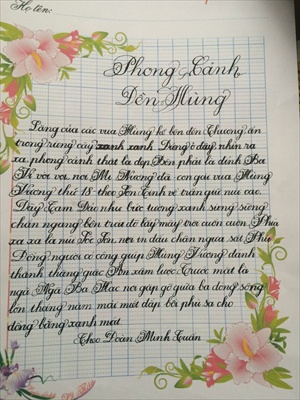 Họ tên:
Phong Cảnh
Đền Hùng
Lăng của các vua Hùng kề bên đền Thượng, ẩn
trong rừng cây xanh xanh. Đứng ở đây, nhìn ra
xa, phong cảnh thật là đẹp. Bên phải là đỉnh Ba
Vì vòi vọi, nơi Mị Nương - con gái vua Hùng
Vương thứ 18 - theo Sơn Tinh về trấn giữ núi cao.
Dãy Tam Đảo như bức tường xanh sừng sững
chắn ngang bên trái đỡ lấy mây trời cuồn cuộn. Phía
xa xa là núi Sóc Sơn, nơi in dấu chân ngựa sắt Phù
Đổng, người có công giúp Hùng Vương đánh
thắng giặc Ân xâm lược. Trước mặt là
ngã Ba Hạc, nơi gặp gỡ giữa ba dòng sông
lớn tháng năm mải miết đắp bồi phù sa cho
đồng bằng xanh mát.
Theo Đoàn Minh Tuấn